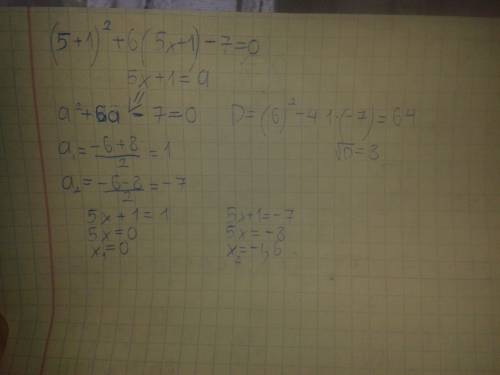 (5+1)² + 6(5x+1) - 7 = 0
5x+1 = a
a² + 6a - 7 = 0 D = (6)² - 4·1·(-7) = 64
√D = 8
a₁ = (-6+8)/2 = 1
a₂ = (-6-8)/2 = -7
5x+1 = 1 5x+1 = -7
5x = 0 5x = -8
x₁ = 0 x₂ = -1,6